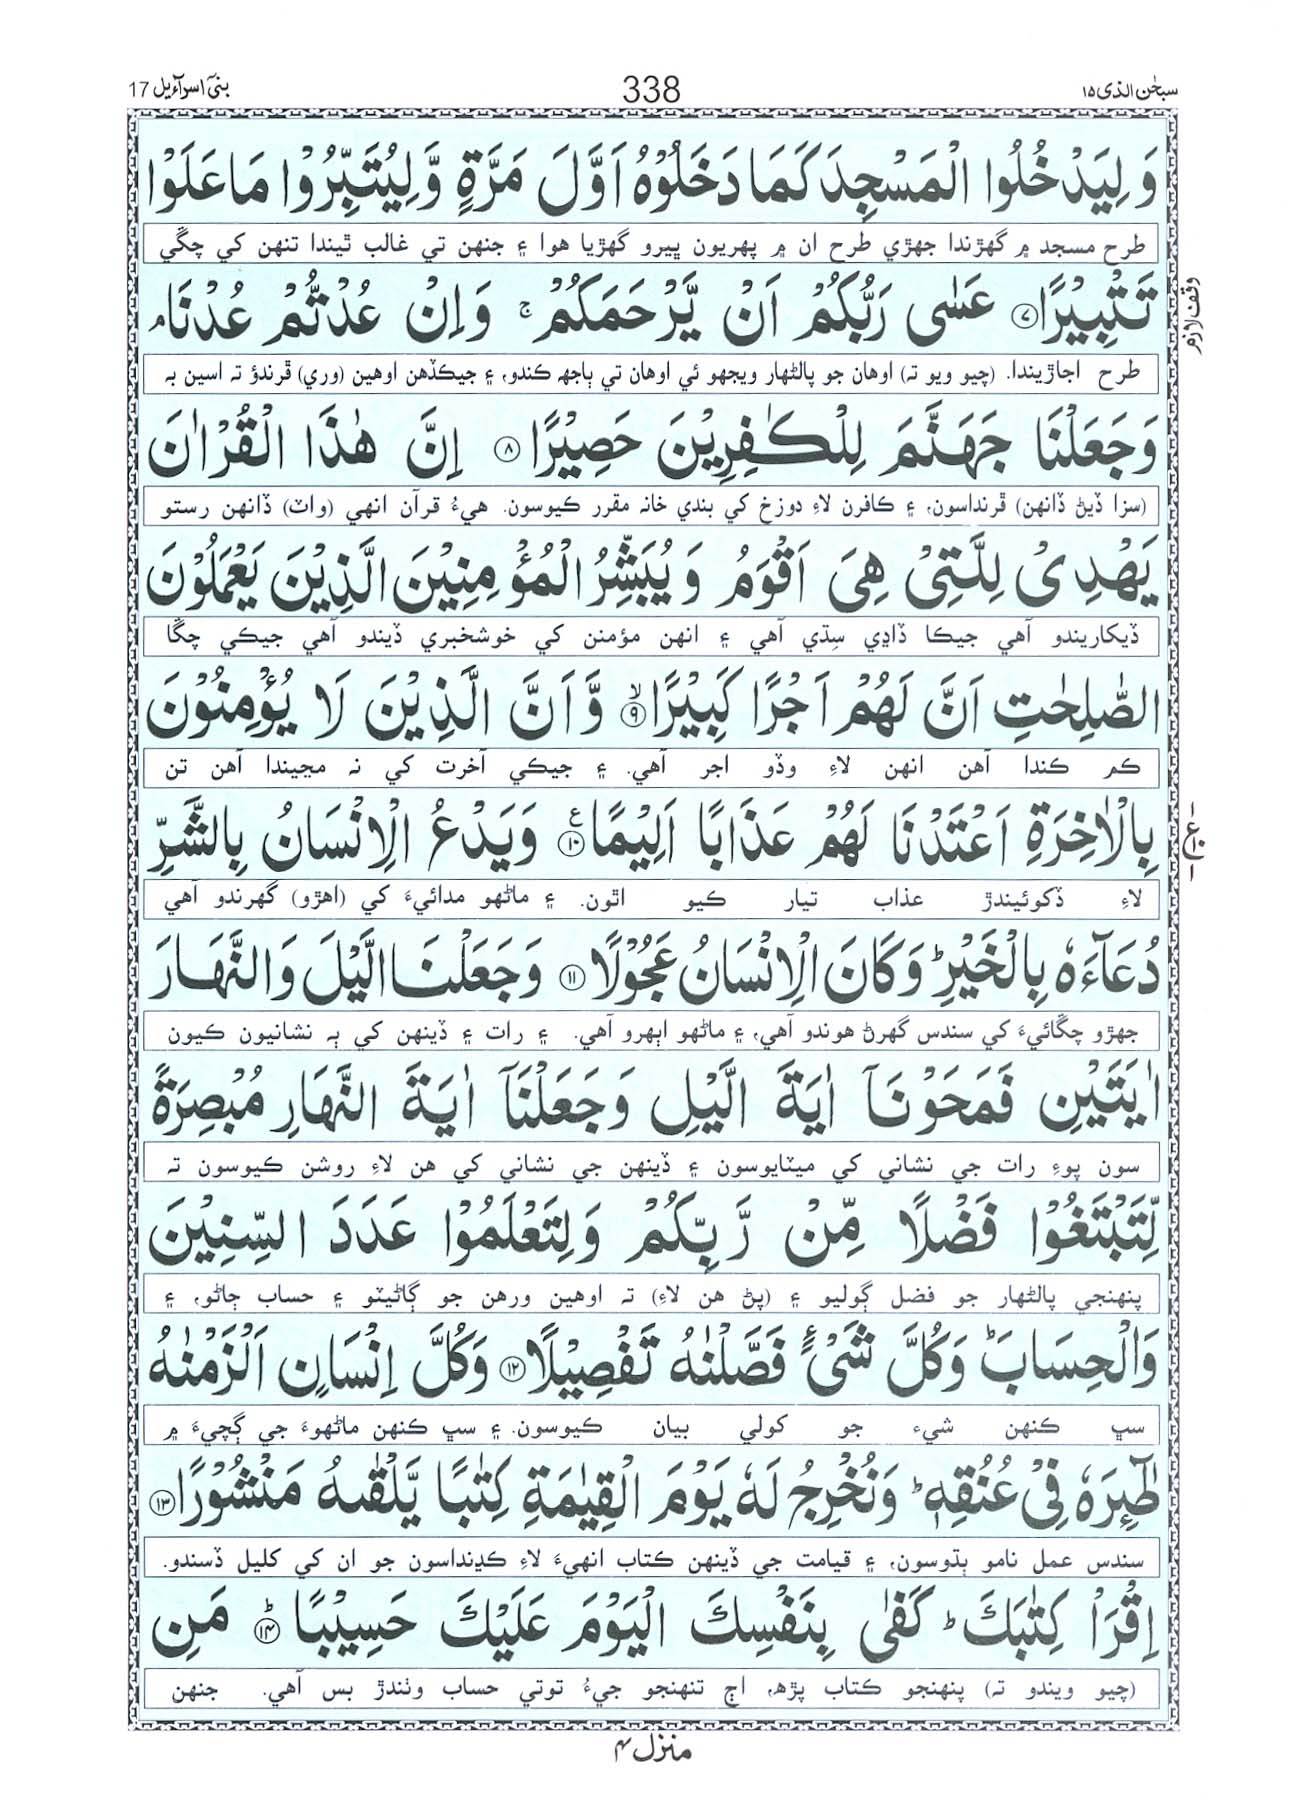 سبحٰن الذی ۱۵
338
بنیٓ اسرآءیل 17
وَلِيَدْخُلُوا الْمَسْجِدَ كَمَا دَخَلُوْهُ اَوَّلَ مَرَّةٍ وَّلِيُتَبِّرُوْا مَا عَلَوْا
طرح مسجد ۾ گھڙندا جھڙي طرح ان ۾ پھريون ڀيرو گھڙيا ھوا ۽ جنھن تي غالب ٿيندا تنھن کي چڱي
تَتْبِيْرًا ۝۷ عَسٰى رَبُّكُمْ اَنْ يَّرْحَمَكُمْ ۚ وَاِنْ عُدْتُّمْ عُدْنَا ۘ
وقف لازم
طرح اجاڙيندا. (چيو ويو تہ) اوھان جو پالڻھار ويجھو ئي اوھان تي ٻاجھ ڪندو، ۽ جيڪڏھن اوھين (وري) ڦرندؤ تہ اسين بہ
وَجَعَلْنَا جَهَنَّمَ لِلْكٰفِرِيْنَ حَصِيْرًا ۝۸ اِنَّ هٰذَا الْقُرْاٰنَ
(سزا ڏيڻ ڏانھن) ڦرنداسون، ۽ ڪافرن لاءِ دوزخ کي بندي خانہ مقرر ڪيوسون. ھيءُ قرآن انھي (واٽ) ڏانھن رستو
يَهْدِيْ لِلَّتِيْ هِيَ اَقْوَمُ وَيُبَشِّرُ الْمُؤْمِنِيْنَ الَّذِيْنَ يَعْمَلُوْنَ
ڏيکاريندو آھي جيڪا ڏاڍي سِڌي آھي ۽ انھن مؤمنن کي خوشخبري ڏيندو آھي جيڪي چڱا
الصّٰلِحٰتِ اَنَّ لَهُمْ اَجْرًا كَبِيْرًا ۙ۝۹ وَّاَنَّ الَّذِيْنَ لَا يُؤْمِنُوْنَ
ڪم ڪندا آھن انھن لاءِ وڏو اجر آھي. ۽ جيڪي آخرت کي نہ مڃيندا آھن تن
بِالْاٰخِرَةِ اَعْتَدْنَا لَهُمْ عَذَابًا اَلِيْمًا ۝۱۰ۧ وَيَدْعُ الْاِنْسَانُ بِالشَّرِّ
لاءِ ڏکوئيندڙ عذاب تيار ڪيو اٿون. ۽ ماڻھو مدائيءَ کي (اھڙو) گھرندو آھي
دُعَآءَهٗ بِالْخَيْرِ ؕ وَكَانَ الْاِنْسَانُ عَجُوْلًا ۝۱۱ وَجَعَلْنَا الَّيْلَ وَالنَّهَارَ
جھڙو چڱائيءَ کي سندس گھرڻ ھوندو آھي، ۽ ماڻھو اٻھرو آھي. ۽ رات ۽ ڏينھن کي ٻہ نشانيون ڪيون
اٰيَتَيْنِ فَمَحَوْنَآ اٰيَةَ الَّيْلِ وَجَعَلْنَآ اٰيَةَ النَّهَارِ مُبْصِرَةً
سون پوءِ رات جي نشاني کي ميٽايوسون ۽ ڏينھن جي نشاني کي ھن لاءِ روشن ڪيوسون تہ
لِّتَبْتَغُوْا فَضْلًا مِّنْ رَّبِّكُمْ وَلِتَعْلَمُوْا عَدَدَ السِّنِيْنَ
پنھنجي پالڻھار جو فضل ڳوليو ۽ (پڻ ھن لاءِ) تہ اوھين ورھن جو ڳاڻيٽو ۽ حساب ڄاڻو، ۽
وَالْحِسَابَ ؕ وَكُلَّ شَيْءٍ فَصَّلْنٰهُ تَفْصِيْلًا ۝۱۲ وَكُلَّ اِنْسَانٍ اَلْزَمْنٰهُ
سڀ ڪنھن شيء جو کولي بيان ڪيوسون. ۽ سڀ ڪنھن ماڻھوءَ جي ڳچيءَ ۾
طٰٓئِرَهٗ فِيْ عُنُقِهٖ ؕ وَنُخْرِجُ لَهٗ يَوْمَ الْقِيٰمَةِ كِتٰبًا يَّلْقٰىهُ مَنْشُوْرًا ۝۱۳
سندس عمل نامو ٻڌوسون، ۽ قيامت جي ڏينھن ڪتاب انھيءَ لاءِ ڪڍنداسون جو ان کي کليل ڏسندو.
اِقْرَاْ كِتٰبَكَ ؕ كَفٰى بِنَفْسِكَ الْيَوْمَ عَلَيْكَ حَسِيْبًا ؕ۝۱۴ مَنِ
(چيو ويندو تہ) پنھنجو ڪتاب پڙھ، اڄ تنھنجو جيءُ توتي حساب وٺندڙ بس آھي. جنھن
منزل ۴